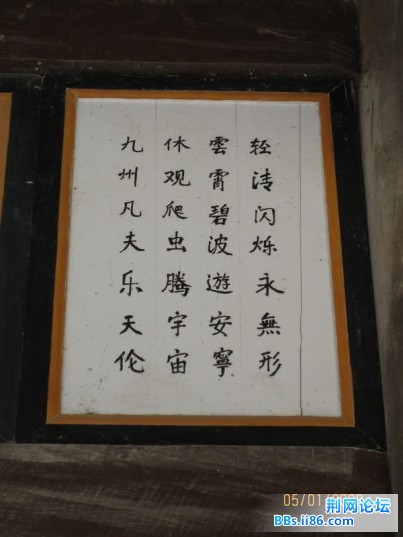 轻清闪烁永無形
雲霄碧波遊安寧
休观爬虫腾宇宙
九州凡夫乐天伦
05/01/
荆网论坛
BBs.ii86.com